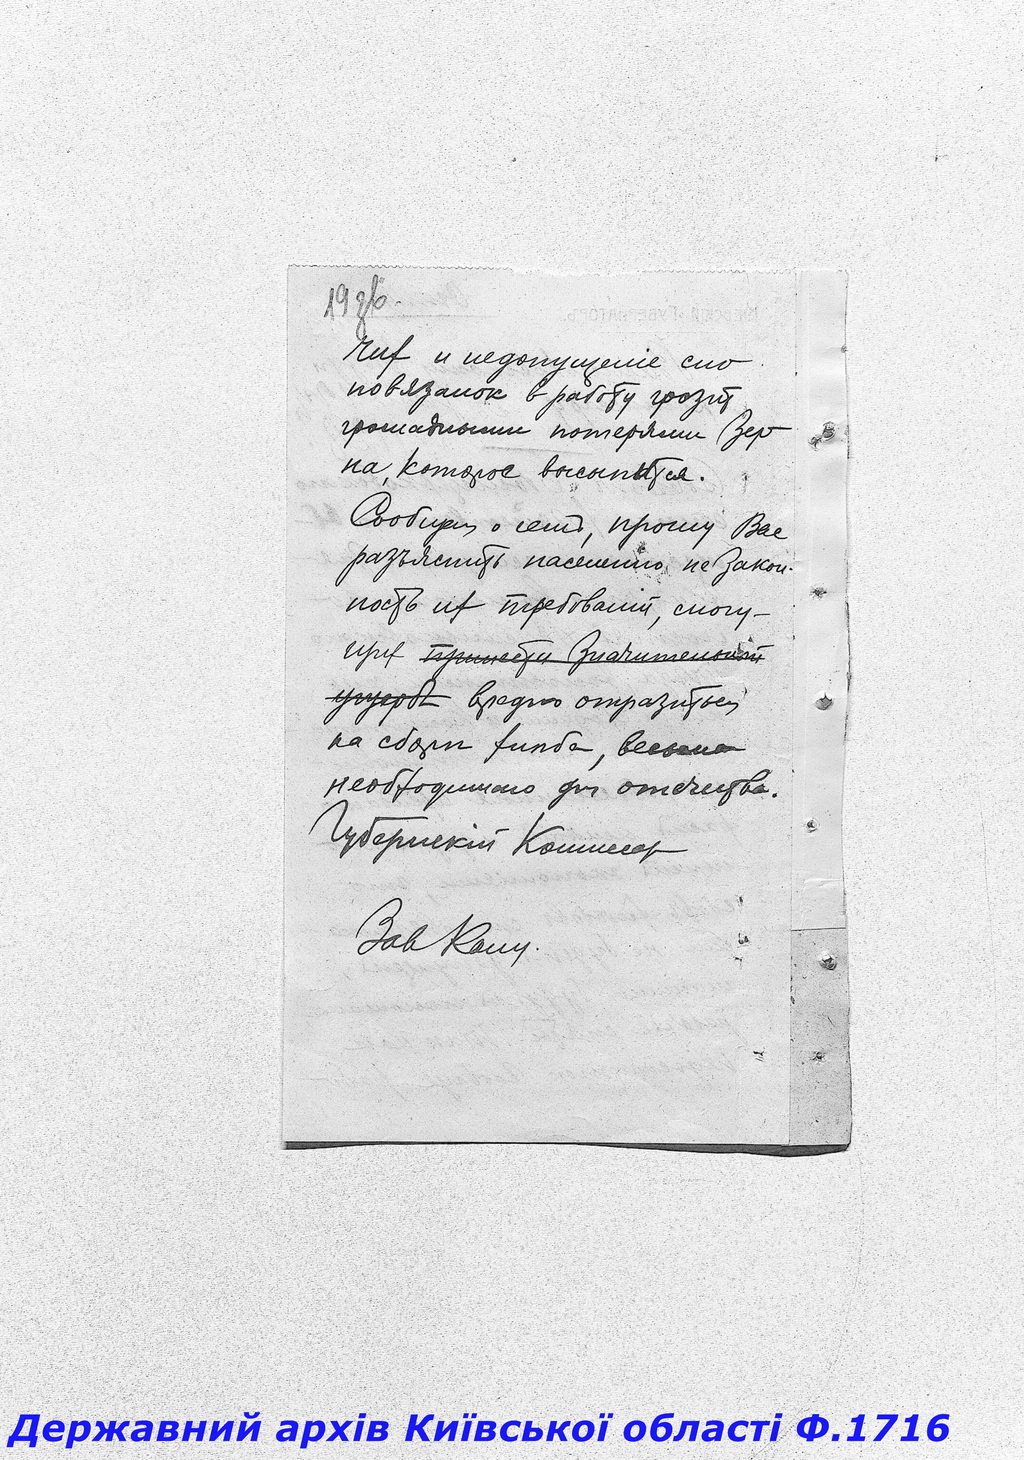 19 зв.
чих и недопущеніе сно
повязалок в работу грозит
громадными потерями зер
на, которое высыпится.
Сообщая о сем, прошу Вас
разъяснить населенію незакон-
ность их требованій, могу-
щих принести значительный
ущерб вредно отразиться
на сборѣ хлѣба, весьма
необходимаго для отечества.
Губернскій Комиссар
Зав Канц.
Державний архів Київської області Ф.1716